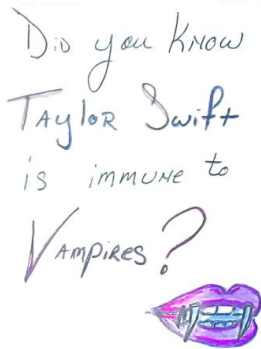 Did you Know
Taylor Swift
is immune to
Vampires?